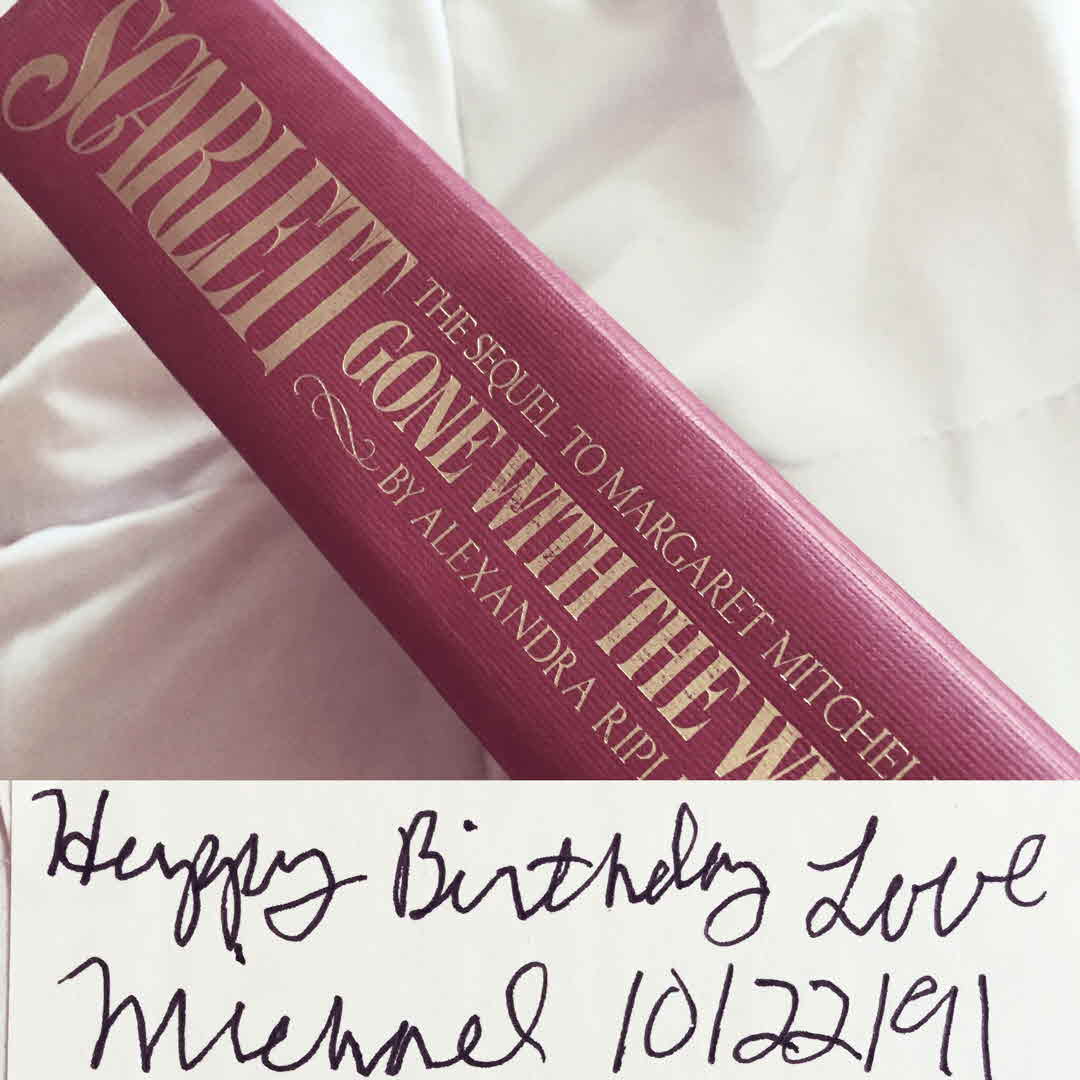 SCARLETT
THE SEQUEL TO MARGARET MITCHEL
GONE WITH THE WI
BY ALEXANDRA RIPL
Happy Birthday Love
Michael 10/22/91